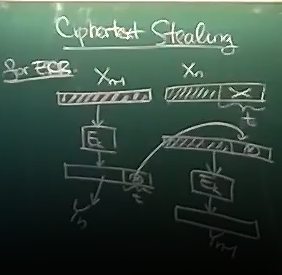 Ciphertext Stealing
for ECB.
Xn-1 Xn
t
Ek
t
Ek
Yn
Yn-1